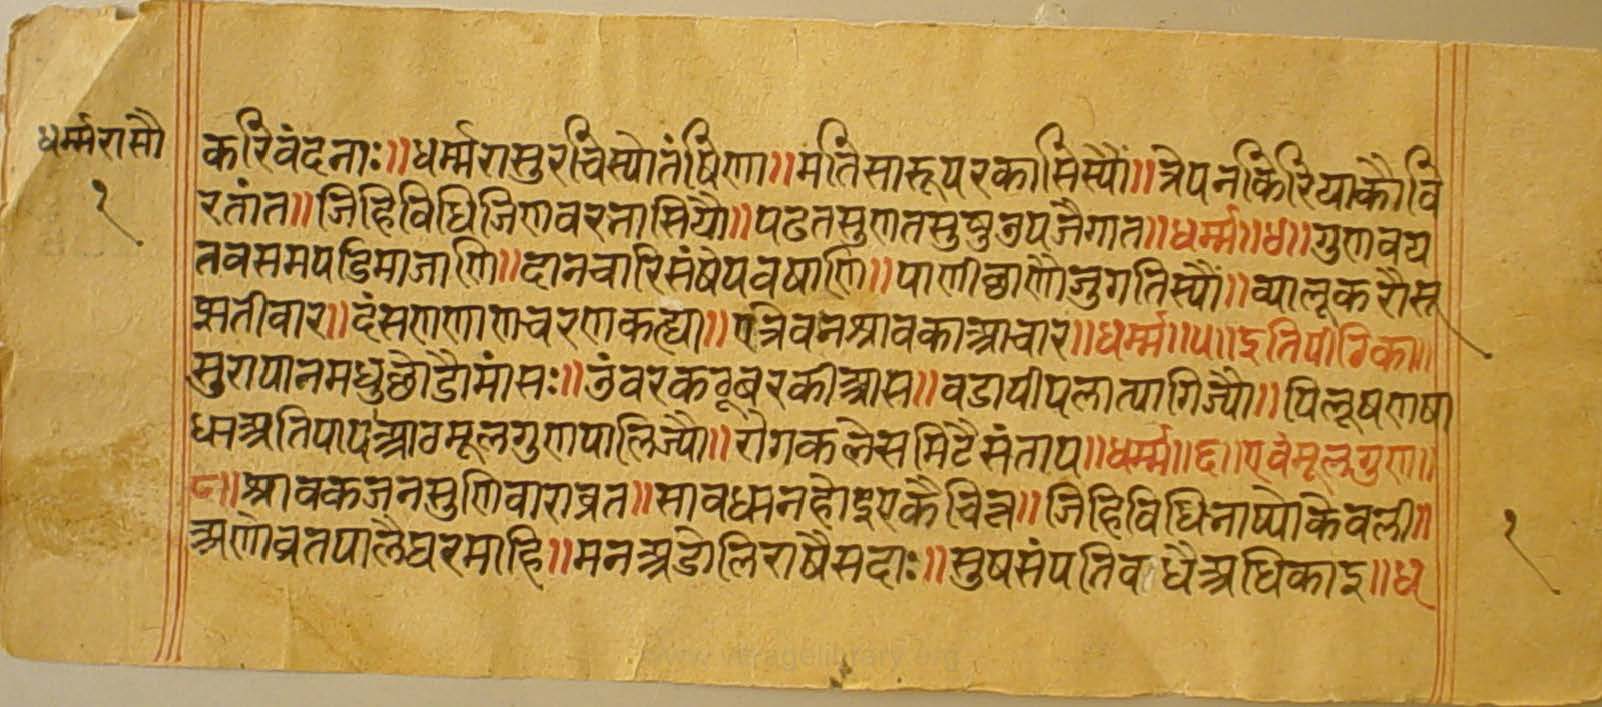 धर्म्मरासौ
१
करिवंदनाः॥धर्म्मरासुरचिस्यौतंषिणा॥मतिसारूपरकासिस्यौं॥त्रेपनकिरियाकौवि
रतांत॥जिहिविधिजिणवरनासियौ॥पढतसुणतसुषुउपजैगात॥धर्म्म॥४॥गुणवय
तवसमपडिमाजाणि॥दानचारिसंषेपवषाणि॥पाणीछाणौजुगतिस्यौं॥व्यालूकरौसू
अतीवार॥दंसणणाणचरणकह्या॥एत्रिवनश्रावकाआचार॥धर्म्म॥५॥इतिपीठिका॥
सुरापानमधुछोडौमांसः॥उंवरकठूंबरकीआस॥वडापीपलात्यागिज्यौ॥पिलूषणषा
धाअतिपाप॥आठमूलगुणपालिज्यौ॥रोगकलेसमिटैसंताप॥धर्म्म॥६॥एवंमूलगुण॥
८॥श्रावकजनसुणिवाराव्रत॥सावधानहोइएकैचित्त॥जिहिविधिनाष्यौकेवली॥
अणोव्रतपालैघरमाहि॥मनअडोलिराषैसदाः॥सुषसंपतिवधैअधिकाइ॥ध
१
www.vitragelibrary.org